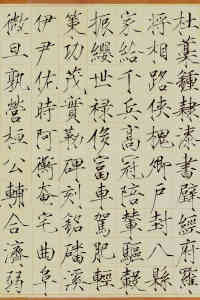 杜藁鍾隸漆書壁經府羅
將相路俠槐卿戶封八縣
家給千兵高冠陪輦驅轂
振纓世祿侈富車駕肥輕
策功茂實勒碑刻銘磻溪
伊尹佐時阿衡奄宅曲阜
微旦孰營桓公輔合濟弱